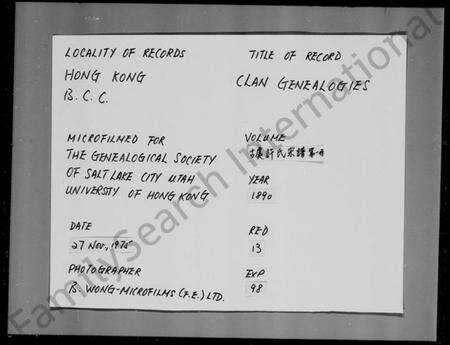 LOCALITY OF RECORDS
HONG KONG
B. C. C.
MICROFILMED FOR
THE GENEALOGICAL SOCIETY
OF SALT LAKE CITY UTAH
UNIVERSTY OF HONG KONG
DATE
27 NOV., 1975
PHOTOGRAPHER
B. WONG-MICROFILMS (F.E.) LTD.
TITLE OF RECORD
CLAN GENEALOGIES
VOLUME
許氏宗譜
YEAR
1890
RED
13
EXP
98
FamilySearch International